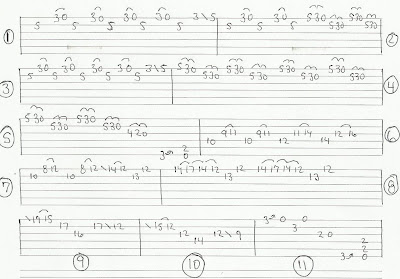 ① 5 30 5 30 5 30 5 30 5 3\5 5 30 5 30 5 30 5 530 530 530 530 570 ②
③ 5 30 5 30 5 30 5 30 5 3\5 530 530 530 530 530 530 530 530 530 530 ④
⑤ 530 530 530 530 420 3 2 0 10 9 11 10 9 11 12 11 14 14 12 16 ⑥
⑦ 10 8 12 10 8 12 \ 14 12 13 12 14 17 14 12 13 12 14 17 14 12 13 12 ⑧
\ 19 15 17 16 17 \ 12 \ 15 12 12 14 12 \ 9 3 0 0 3 2 0 3 2 2 0
⑨ ⑩ ⑪